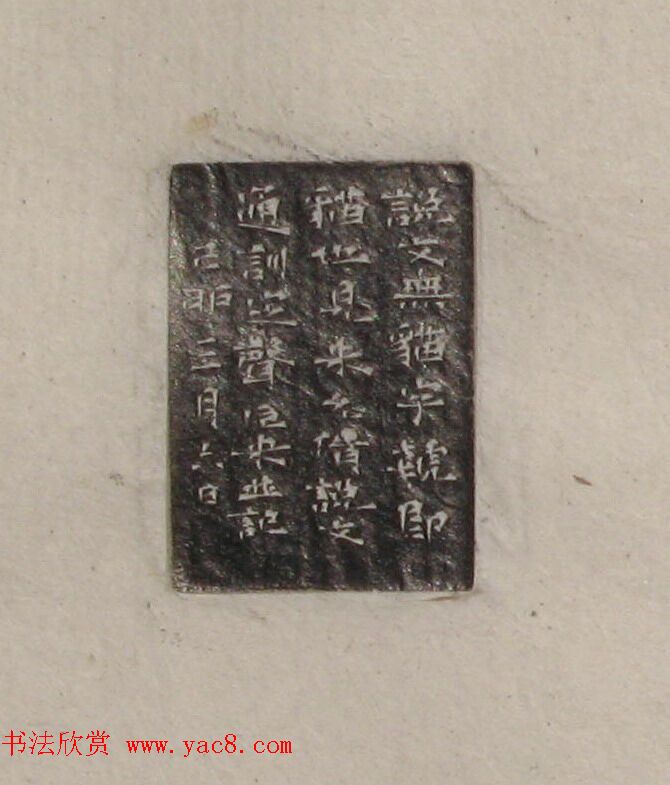 說文無貓字虦即
貓也見朱說文
通訓定聲並記
己卯三月六日
书法欣赏 www.yac8.com